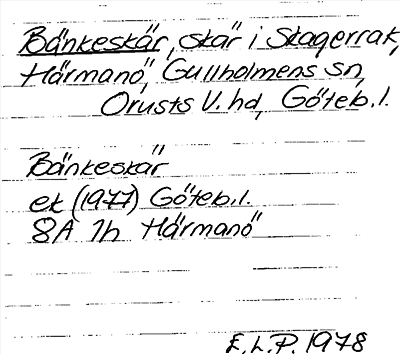 Bänkeskär, skär i Skagerrak,
Härmanö, Gullholmens sn,
Orusts V. hd, Göteb.l.
Bänkeskär
ek (1977) Göteb.l.
8A 1h Härmanö
E.L.P. 1978